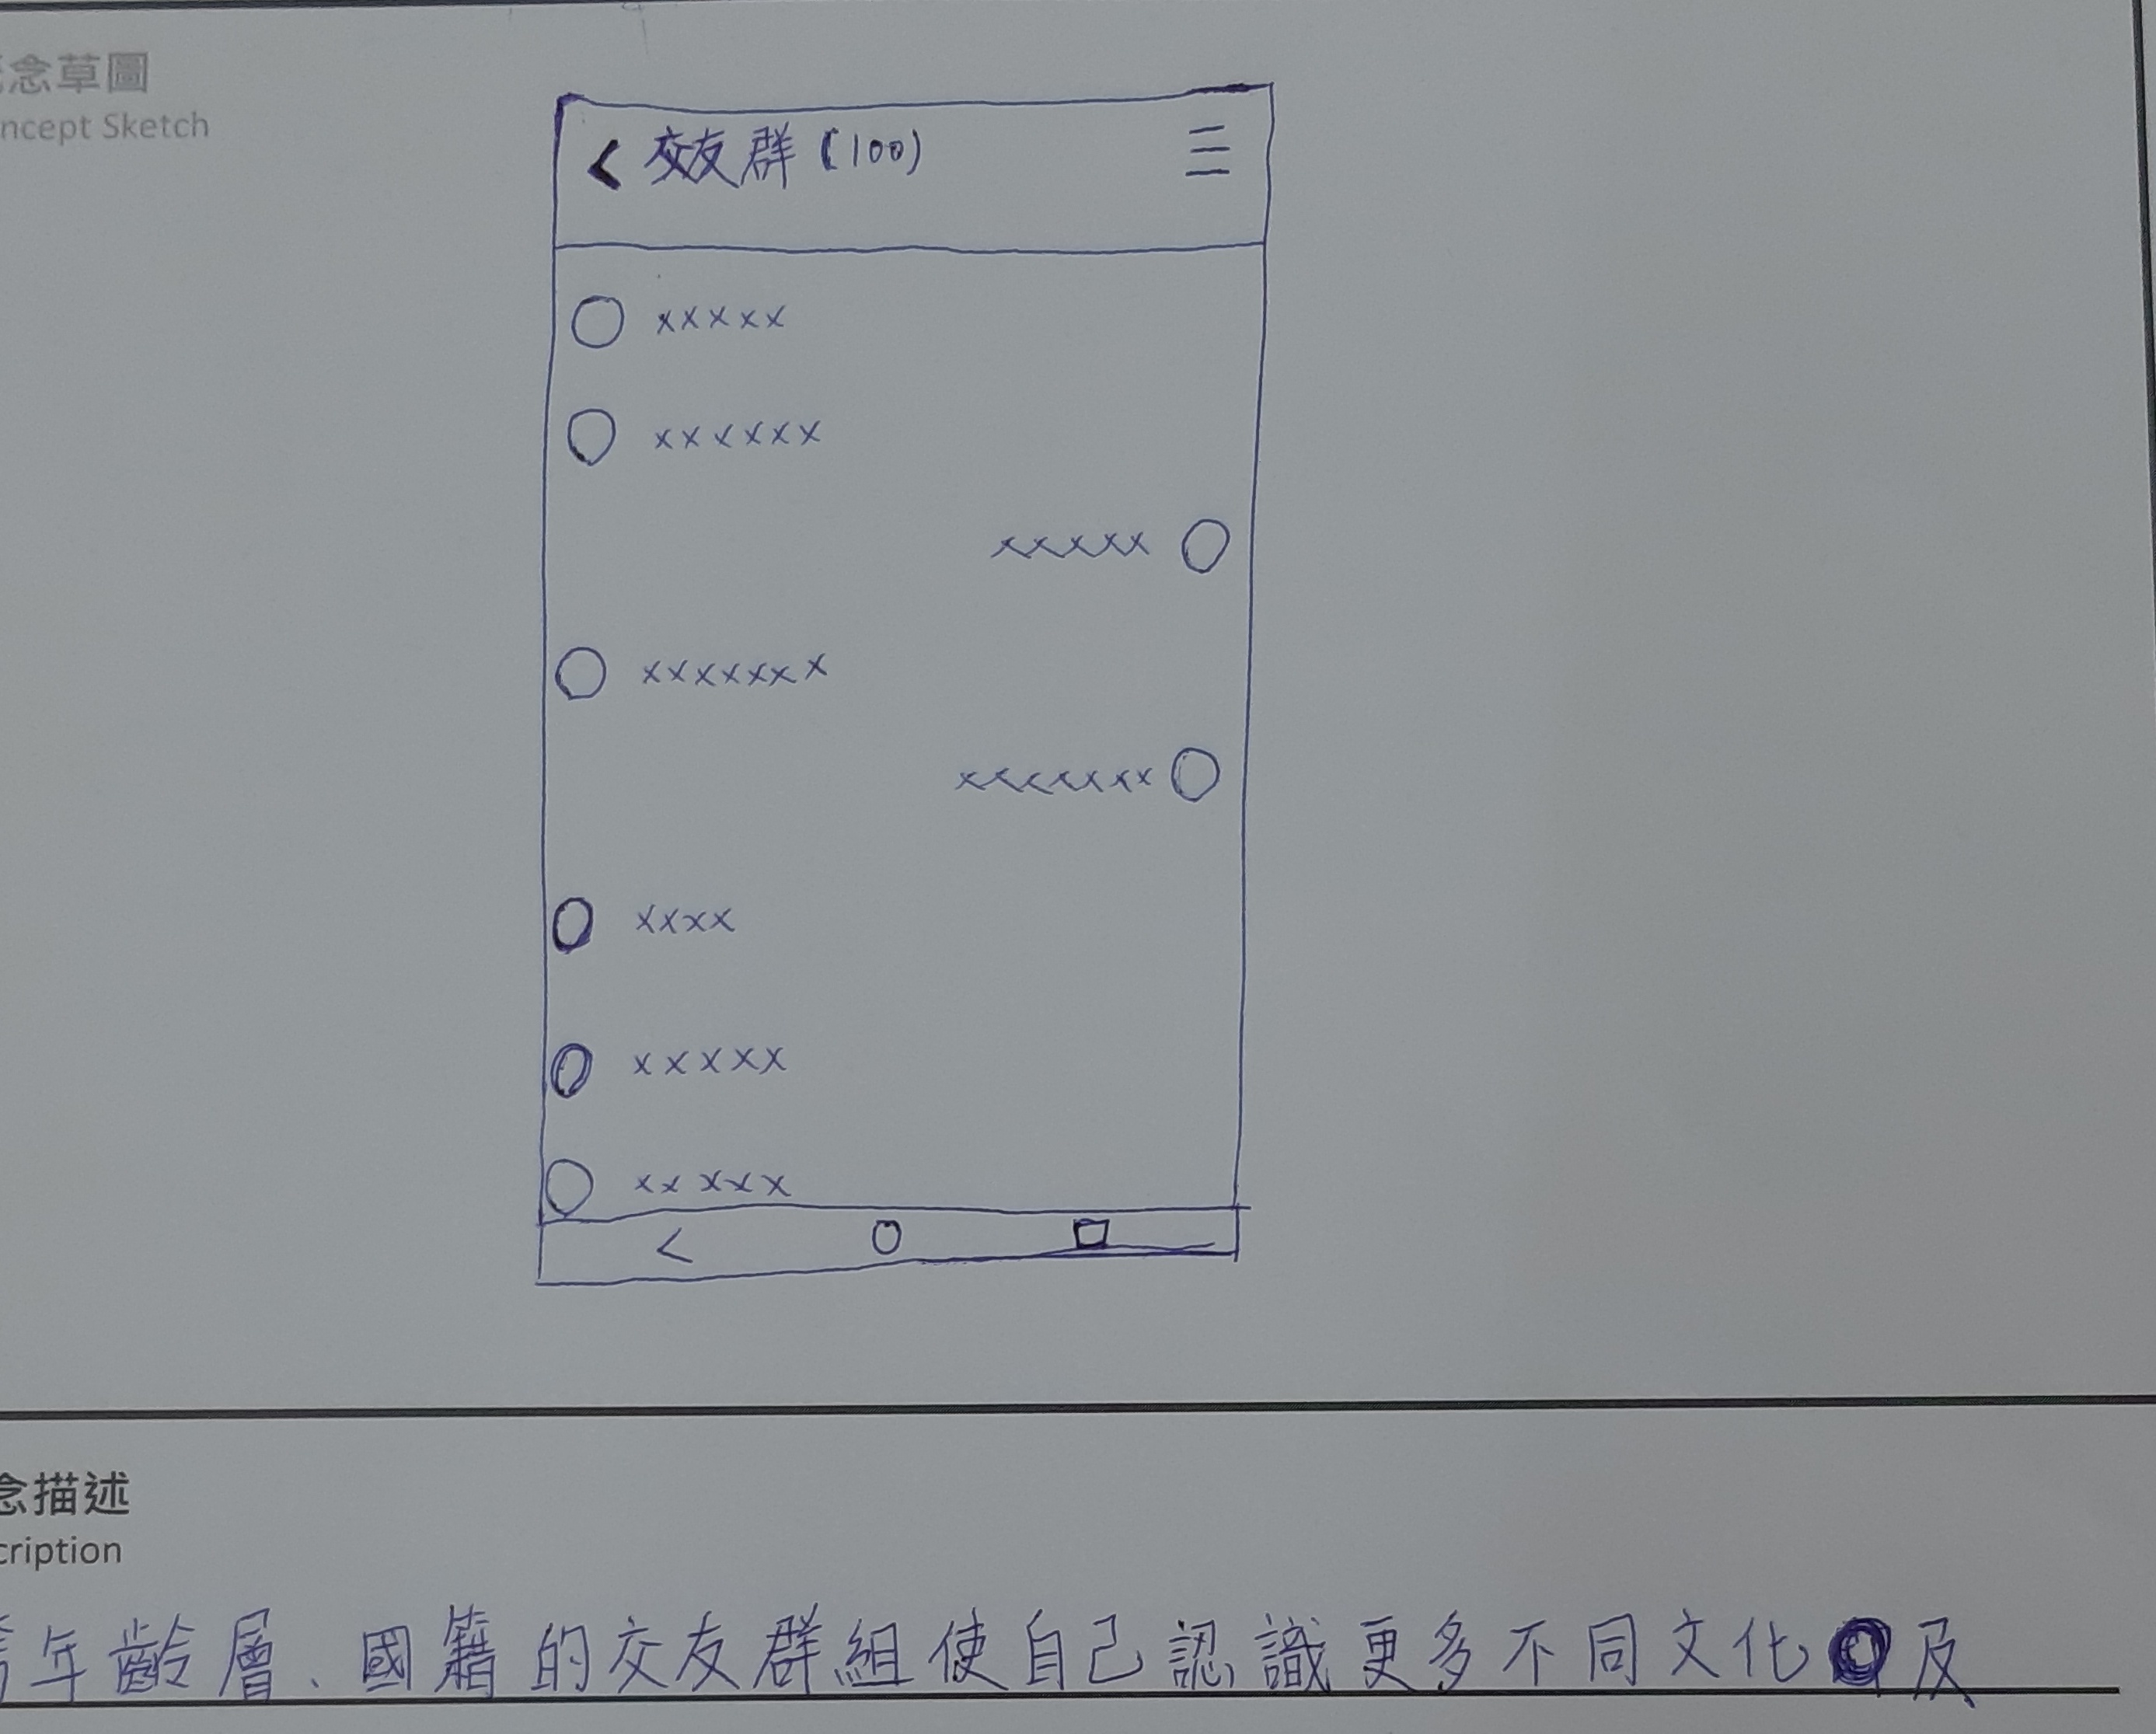 念草圖
ncept Sketch
< 交友群 (100) ☰
xxxxx
xxxxxx
xxxxx
xxxxxxx
xxxxxxx
xxxx
xxxxx
xxxxx
念描述
cription
年齡層、國籍的交友群組使自己認識更多不同文化及